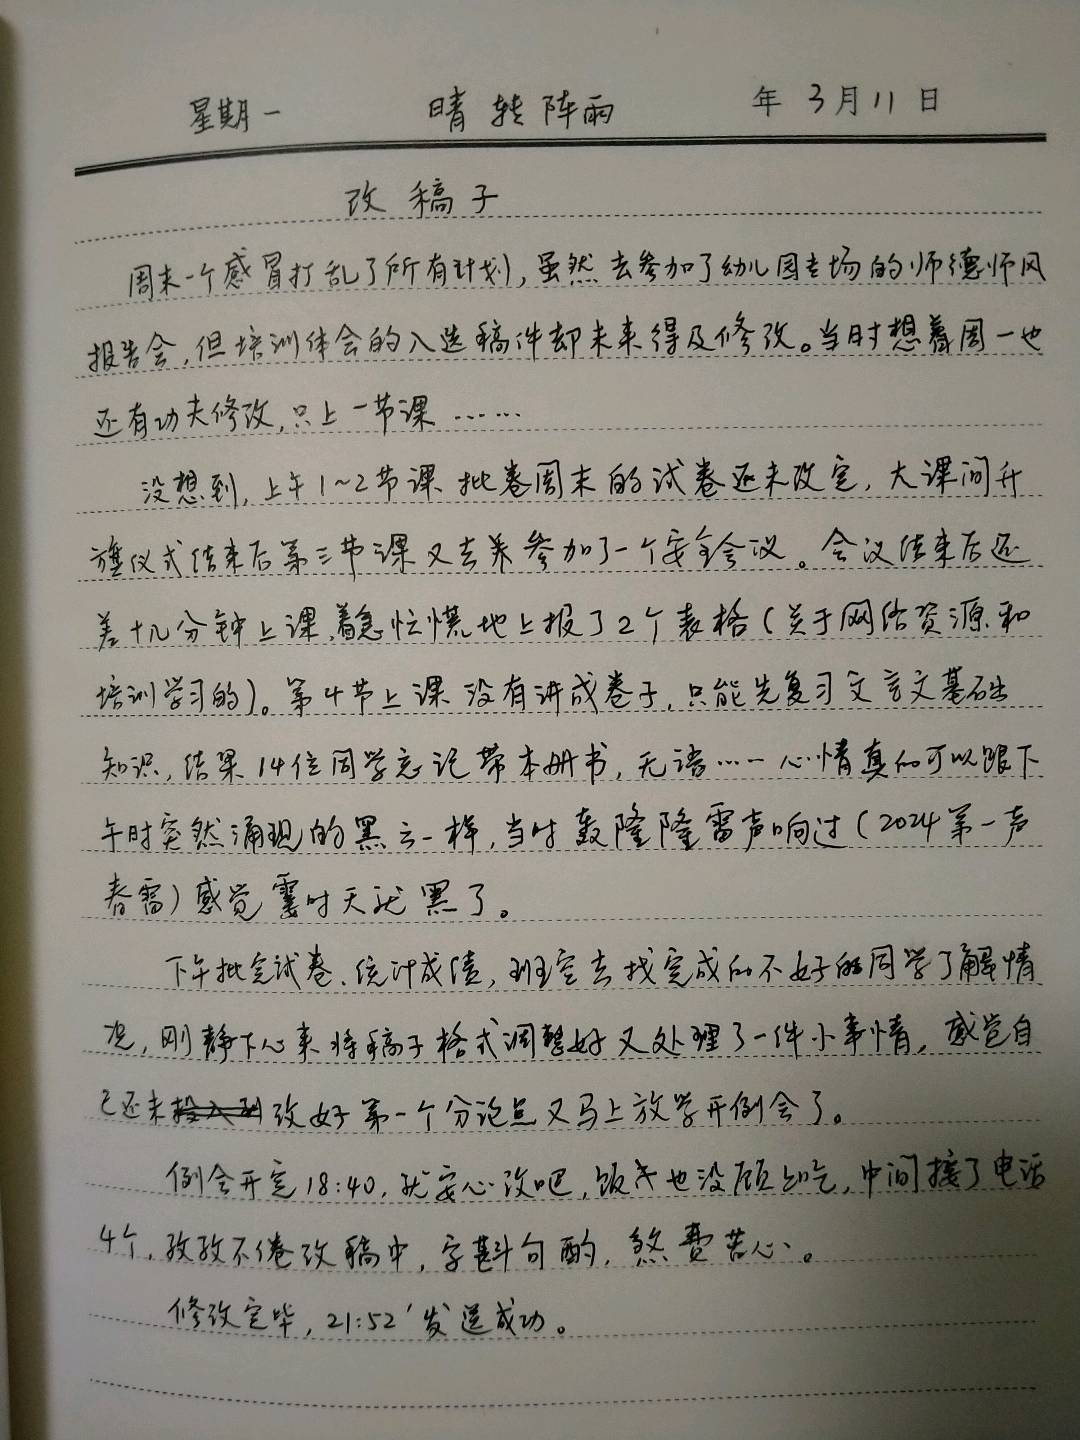 星期一 晴转阵雨 年 3月11日
改稿子
周末一个感冒打乱了所有计划,虽然去参加了幼儿园专场的师德师风
报告会,但培训体会的入选稿件却未来得及修改。当时想着周一也
还有功夫修改,只上一节课……
没想到,上午1~2节课批卷周末的试卷还未改完,大课间升
旗仪式结束后第三节课又去参加了一个安全会议。会议结束后还
差十几分钟上课,着急忙慌地上报了2个表格(关于网络资源和
培训学习的)。第4节上课没有讲成卷子,只能先复习文言文基础
知识,结果14位同学忘记带本册书,无语……心情真的可以跟下
午时突然涌现的黑云一样,当时轰隆隆雷声响过(2024第一声
春雷)感觉霎时天就黑了。
下午批完试卷、统计成绩,班空去找完成的不好的同学了解情
况,刚静下心来将稿子格式调整好又处理了一件小事情,感觉自
己还未改好第一个分论点又马上放学开例会了。
例会开完18:40,就安心改吧,饭也没顾上吃,中间接了电话
4个,孜孜不倦改稿中,字斟句酌,煞费苦心。
修改完毕,21:52'发送成功。